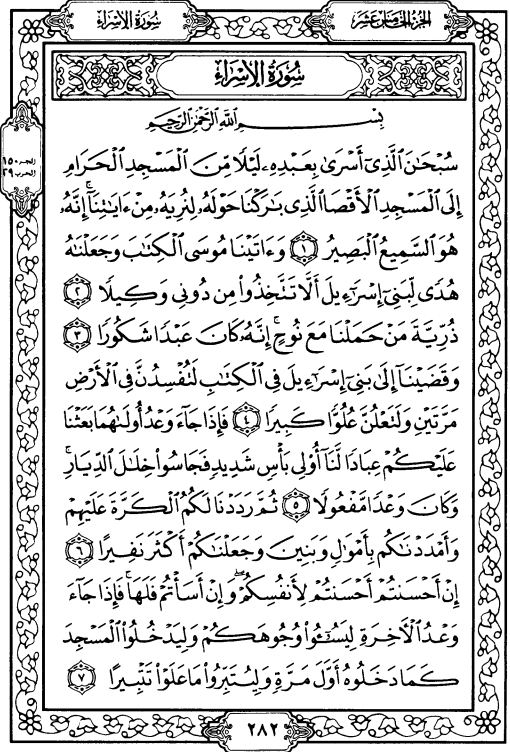 سُورَةُ الإِسْرَاءِ
الجُزْءُ الخَامِسَ عَشَرَ
سُورَةُ الإِسْرَاءِ
الجزء ١٥
الحزب ٢٩
بِسْمِ اللَّهِ الرَّحْمَٰنِ الرَّحِيمِ
سُبْحَٰنَ ٱلَّذِىٓ أَسْرَىٰ بِعَبْدِهِۦ لَيْلًا مِّنَ ٱلْمَسْجِدِ ٱلْحَرَامِ
إِلَى ٱلْمَسْجِدِ ٱلْأَقْصَا ٱلَّذِى بَٰرَكْنَا حَوْلَهُۥ لِنُرِيَهُۥ مِنْ ءَايَٰتِنَآ ۚ إِنَّهُۥ
هُوَ ٱلسَّمِيعُ ٱلْبَصِيرُ ١ وَءَاتَيْنَا مُوسَى ٱلْكِتَٰبَ وَجَعَلْنَٰهُ
هُدًى لِّبَنِىٓ إِسْرَٰٓءِيلَ أَلَّا تَتَّخِذُوا۟ مِن دُونِى وَكِيلًا ٢
ذُرِّيَّةَ مَنْ حَمَلْنَا مَعَ نُوحٍ ۚ إِنَّهُۥ كَانَ عَبْدًا شَكُورًا ٣
وَقَضَيْنَآ إِلَىٰ بَنِىٓ إِسْرَٰٓءِيلَ فِى ٱلْكِتَٰبِ لَتُفْسِدُنَّ فِى ٱلْأَرْضِ
مَرَّتَيْنِ وَلَتَعْلُنَّ عُلُوًّا كَبِيرًا ٤ فَإِذَا جَآءَ وَعْدُ أُولَىٰهُمَا بَعَثْنَا
عَلَيْكُمْ عِبَادًا لَّنَآ أُو۟لِى بَأْسٍ شَدِيدٍ فَجَاسُوا۟ خِلَٰلَ ٱلدِّيَارِ ۚ
وَكَانَ وَعْدًا مَّفْعُولًا ٥ ثُمَّ رَدَدْنَا لَكُمُ ٱلْكَرَّةَ عَلَيْهِمْ
وَأَمْدَدْنَٰكُم بِأَمْوَٰلٍ وَبَنِينَ وَجَعَلْنَٰكُمْ أَكْثَرَ نَفِيرًا ٦
إِنْ أَحْسَنتُمْ أَحْسَنتُمْ لِأَنفُسِكُمْ ۖ وَإِنْ أَسَأْتُمْ فَلَهَا ۚ فَإِذَا جَآءَ
وَعْدُ ٱلْءَاخِرَةِ لِيَسُۥٓـُٔوا۟ وُجُوهَكُمْ وَلِيَدْخُلُوا۟ ٱلْمَسْجِدَ
كَمَا دَخَلُوهُ أَوَّلَ مَرَّةٍ وَلِيُتَبِّرُوا۟ مَا عَلَوْا۟ تَتْبِيرًا ٧
٢٨٢